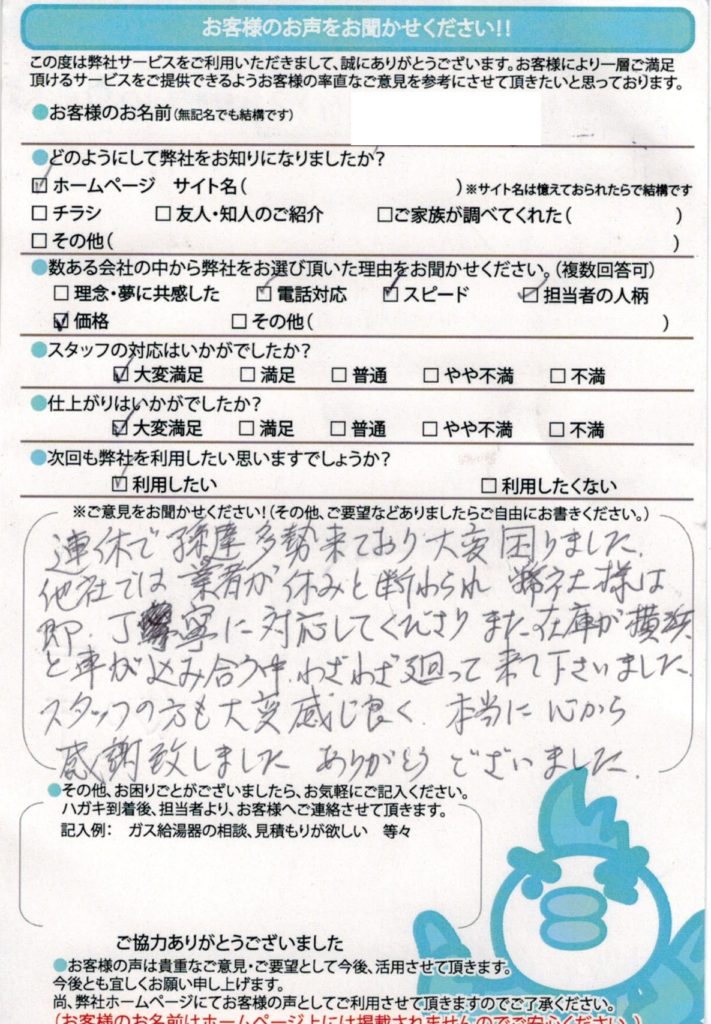 お客様のお声をお聞かせください!!
この度は弊社サービスをご利用いただきまして、誠にありがとうございます。お客様により一層ご満足
頂けるサービスをご提供できるようお客様の率直なご意見を参考にさせて頂きたいと思っております。
●お客様のお名前(無記名でも結構です)
●どのようにして弊社をお知りになりましたか?
☑ホームページ サイト名( )※サイト名は憶えておられたらで結構です
□チラシ □友人・知人のご紹介 □ご家族が調べてくれた( )
□その他( )
●数ある会社の中から弊社をお選び頂いた理由をお聞かせください。(複数回答可)
□理念・夢に共感した ☑電話対応 ☑スピード ☑担当者の人柄
☑価格 □その他( )
●スタッフの対応はいかがでしたか?
☑大変満足 □満足 □普通 □やや不満 □不満
●仕上がりはいかがでしたか?
☑大変満足 □満足 □普通 □やや不満 □不満
●次回も弊社を利用したい思いますでしょうか?
☑利用したい □利用したくない
※ご意見をお聞かせください!(その他、ご要望などありましたらご自由にお書きください。)
連休で孫達多勢来ており大変困りました.
他社では業者が休みと断わられ 弊社様は
即.丁寧に対応してくださり また在庫が横浜
と車が込み合う中.わざわざ廻って来て下さいました.
スタッフの方も大変感じ良く.本当に心から
感謝致しました ありがとうございました.
●その他、お困りごとがございましたら、お気軽にご記入ください。
ハガキ到着後、担当者より、お客様へご連絡させて頂きます。
記入例: ガス給湯器の相談、見積もりが欲しい 等々
ご協力ありがとうございました
●お客様の声は貴重なご意見・ご要望として今後、活用させて頂きます。
今後とも宜しくお願い申し上げます。
尚、弊社ホームページにてお客様の声としてご利用させて頂きますのでご了承ください。
(お客様のお名前はホームページ上には掲載されませんのでご安心ください。)